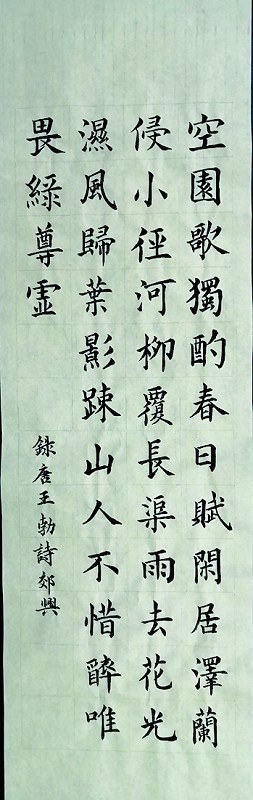 空園歌獨酌春日賦閑居澤蘭
侵小徑河柳覆長渠雨去花光
濕風歸葉影踈山人不惜醉唯
畏綠尊虛
錄唐王勃詩郊興